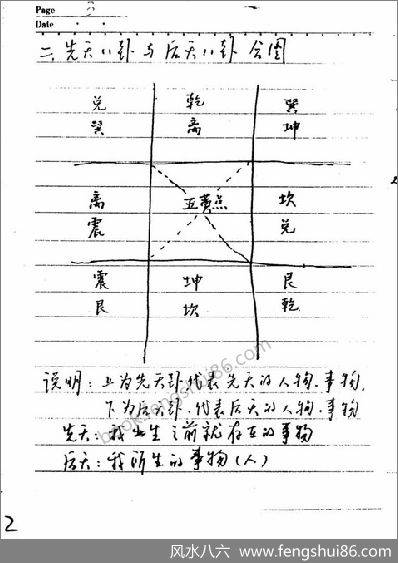 Page 3
Date
二、先天八卦与后天八卦合图
兑 乾 巽
巽 离 坤
离 五黄点 坎
震 兑
震 坤 艮
艮 坎 乾
说明：上为先天卦.代表先天的人物.事物.
下为后天卦.代表后天的人物.事物
先天：我出生之前就存在的事物
后天：我所生的事物(人)
2
bookfengshui86.com
风水八六 www.fengshui86.com